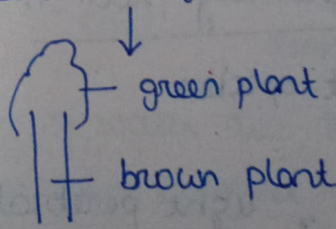 green plant
brown plant